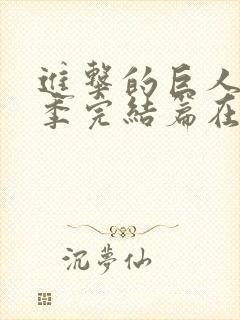 進擊的巨人
季完結篇在
沉夢仙